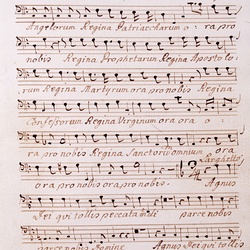 Angelorum Regina Patriarcharum o: ra pro
nobis Regina Prophetarum Regina Aposto lo:
rum Regina Martyrum ora pro nobis Regina
Confessorum Regina Virginum ora ora o:
ra pro nobis Regina Sanctorũ omnium ora
Larghetto
ora pro nobis ora pro nobis. Agnus
Dei qui tollis peccata mũdi parce nobis
parce nobis Domine Agnus Dei qui tollis